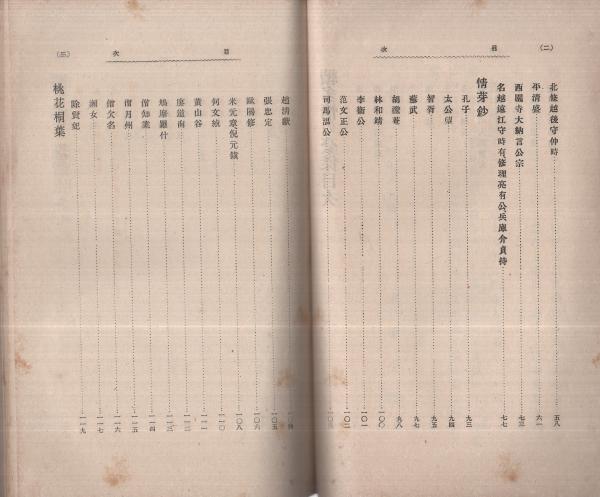 (二)
目次
北條越後守仲時 五八
平清盛 六一
西園寺大納言公宗 七三
名越遠江守時有修理亮有公兵庫介貞持 七七
情芽鈔
孔子 九三
太公望 九四
智蒼 九五
蘇武 九七
胡澹菴 九八
林和靖 一〇〇
李衞公 一〇一
范文正公 一〇二
司馬溫公
目次
(三)
趙清獻
張忠定 一〇五
歐陽修 一〇六
米元章倪元鎮 一〇八
何文縝 一一〇
黃山谷 一一一
廖道南 一一二
鳩摩羅什 一一三
僧知業 一一四
僧月州 一一五
僧欠名 一一六
湘女 一一七
除賢妃 一一九
桃花桐葉